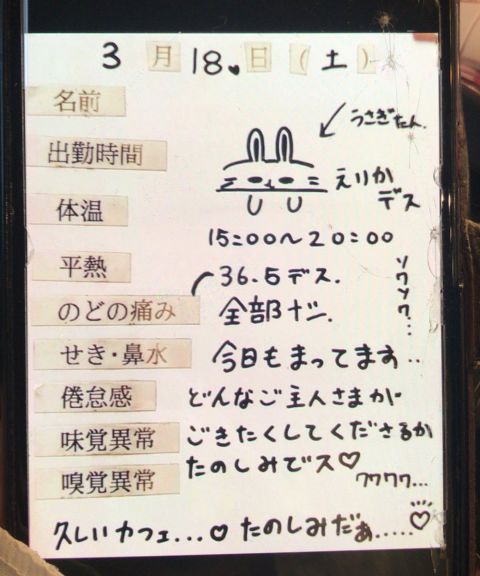 3月18.日(土)
名前
うさぎたん.
出勤時間
えりか
デス
体温
15:00〜20:00
平熱
36.5デス.
ソワソワ...
のどの痛み
全部ナシ.
せき・鼻水
今日もまってます..
倦怠感
どんなご主人さまが
味覚異常
ごきたくしてくださるか
嗅覚異常
たのしみでス♡
クワワワ...
久しいカフェ...♡ たのしみだぁ.....♡